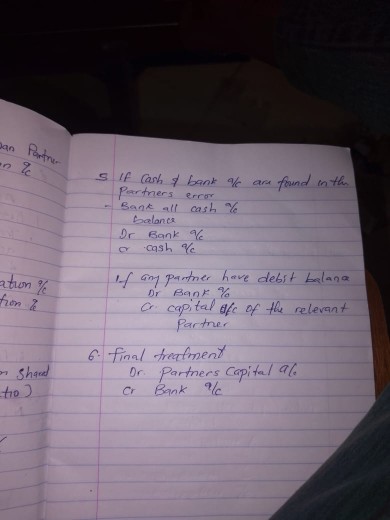 an Partner
n a/c
ation a/c
tion a/c
n shared
tio)
5 If Cash & bank a/c are found in the
Partners error
- Bank all cash a/c
balance
Dr Bank a/c
cr cash a/c
If any partner have debit balance
Dr Bank a/c
Cr capital a/c of the relevant
Partner
6. final treatment
Dr. Partners Capital a/c
cr Bank a/c